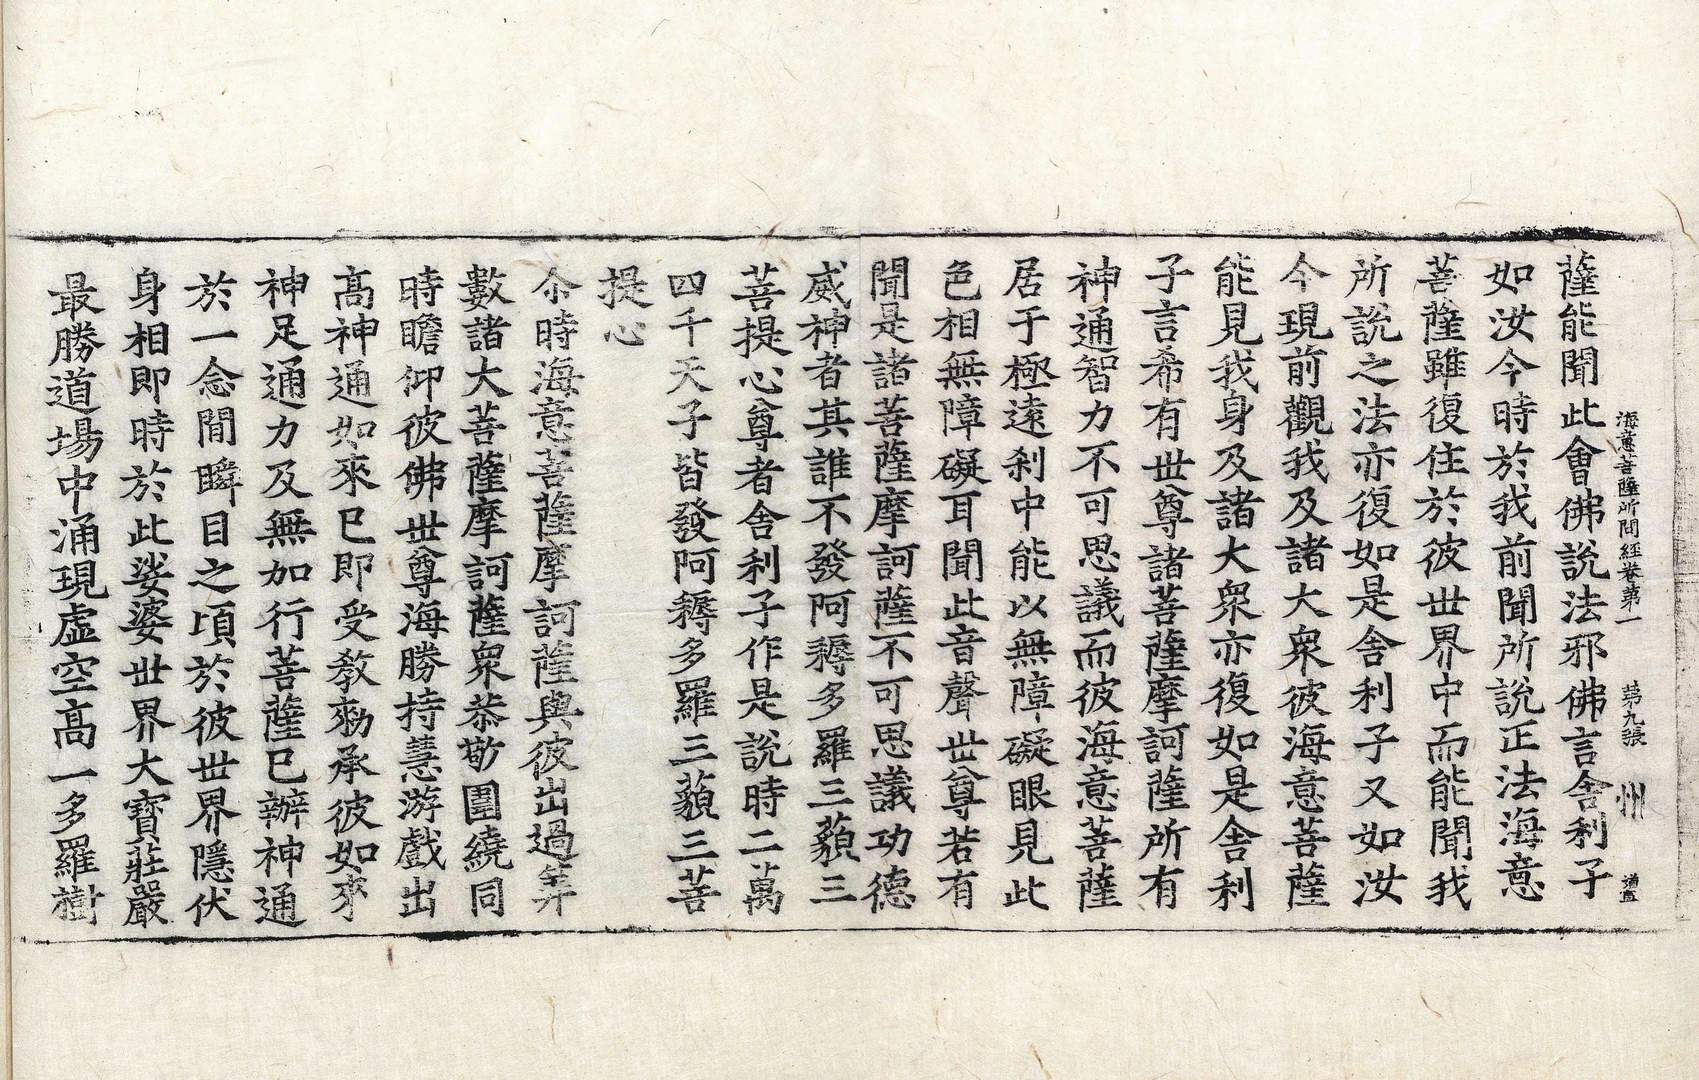 海意菩薩所問經卷第一　第九張　州
薩能聞此會佛說法邪佛言舍利子
如汝今時於我前聞所說正法海意
菩薩雖復住於彼世界中而能聞我
所說之法亦復如是舍利子又如汝
今現前觀我及諸大衆彼海意菩薩
能見我身及諸大衆亦復如是舍利
子言希有世尊諸菩薩摩訶薩所有
神通智力不可思議而彼海意菩薩
居于極遠刹中能以無障礙眼見此
色相無障礙耳聞此音聲世尊若有
聞是諸菩薩摩訶薩不可思議功德
威神者其誰不發阿耨多羅三藐三
菩提心尊者舍利子作是說時二萬
四千天子皆發阿耨多羅三藐三菩
提心
尒時海意菩薩摩訶薩與彼出過筭
數諸大菩薩摩訶薩衆恭敬圍繞同
時瞻仰彼佛世尊海勝持慧游戲出
高神通如來已即受敎勑承彼如來
神足通力及無加行菩薩已辦神通
於一念間瞬目之頃於彼世界隱伏
身相即時於此娑婆世界大寶莊嚴
最勝道場中涌現虛空高一多羅樹